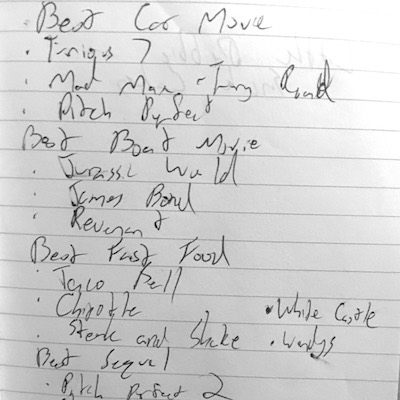 Best Car Movie
• Furious 7
• Mad Max - Fury Road
• Pitch Perfect
Best Boat Movie
• Jurassic World
• James Bond
• Revenant
Best Fast Food
• Taco Bell
• Chipotle
• White Castle
• Steak and Shake
• Wendys
Best Sequel
• Pitch Perfect 2